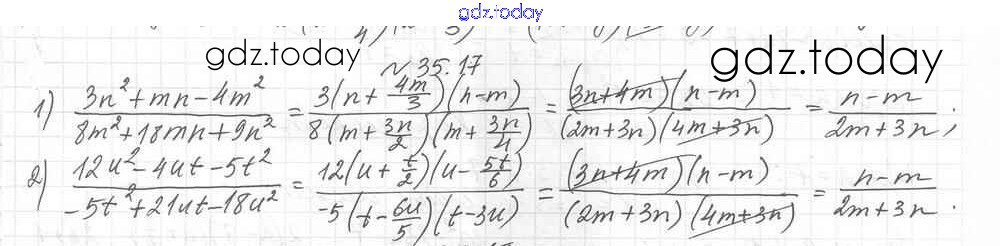 gdz.today
gdz.today
gdz.today
№ 35.17
1) \frac{3n^2+mn-4m^2}{8m^2+18mn+9n^2} = \frac{3(n+\frac{4m}{3})(n-m)}{8(m+\frac{3n}{2})(m+\frac{3n}{4})} = \frac{(3n+4m)(n-m)}{(2m+3n)(4m+3n)} = \frac{n-m}{2m+3n};
2) \frac{12u^2-4ut-5t^2}{-5t^2+21ut-18u^2} = \frac{12(u+\frac{t}{2})(u-\frac{5t}{6})}{-5(t-\frac{6u}{5})(t-3u)} = \frac{(3n+4m)(n-m)}{(2m+3n)(4m+3n)} = \frac{n-m}{2m+3n}.